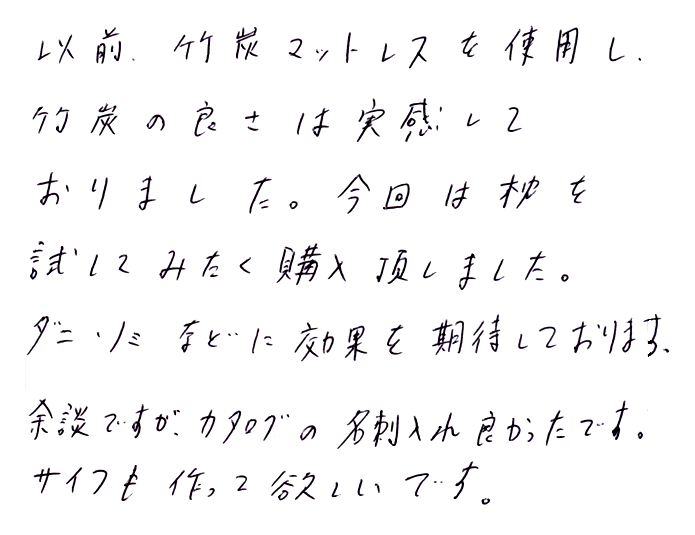 以前、竹炭マットレスを使用し、
竹炭の良さは実感して
おりました。今回は枕を
試してみたく購入頂しました。
ダニ・ノミなどに効果を期待しております。
余談ですが、カタログの名刺入れ良かったです。
サイフも作って欲しいです。